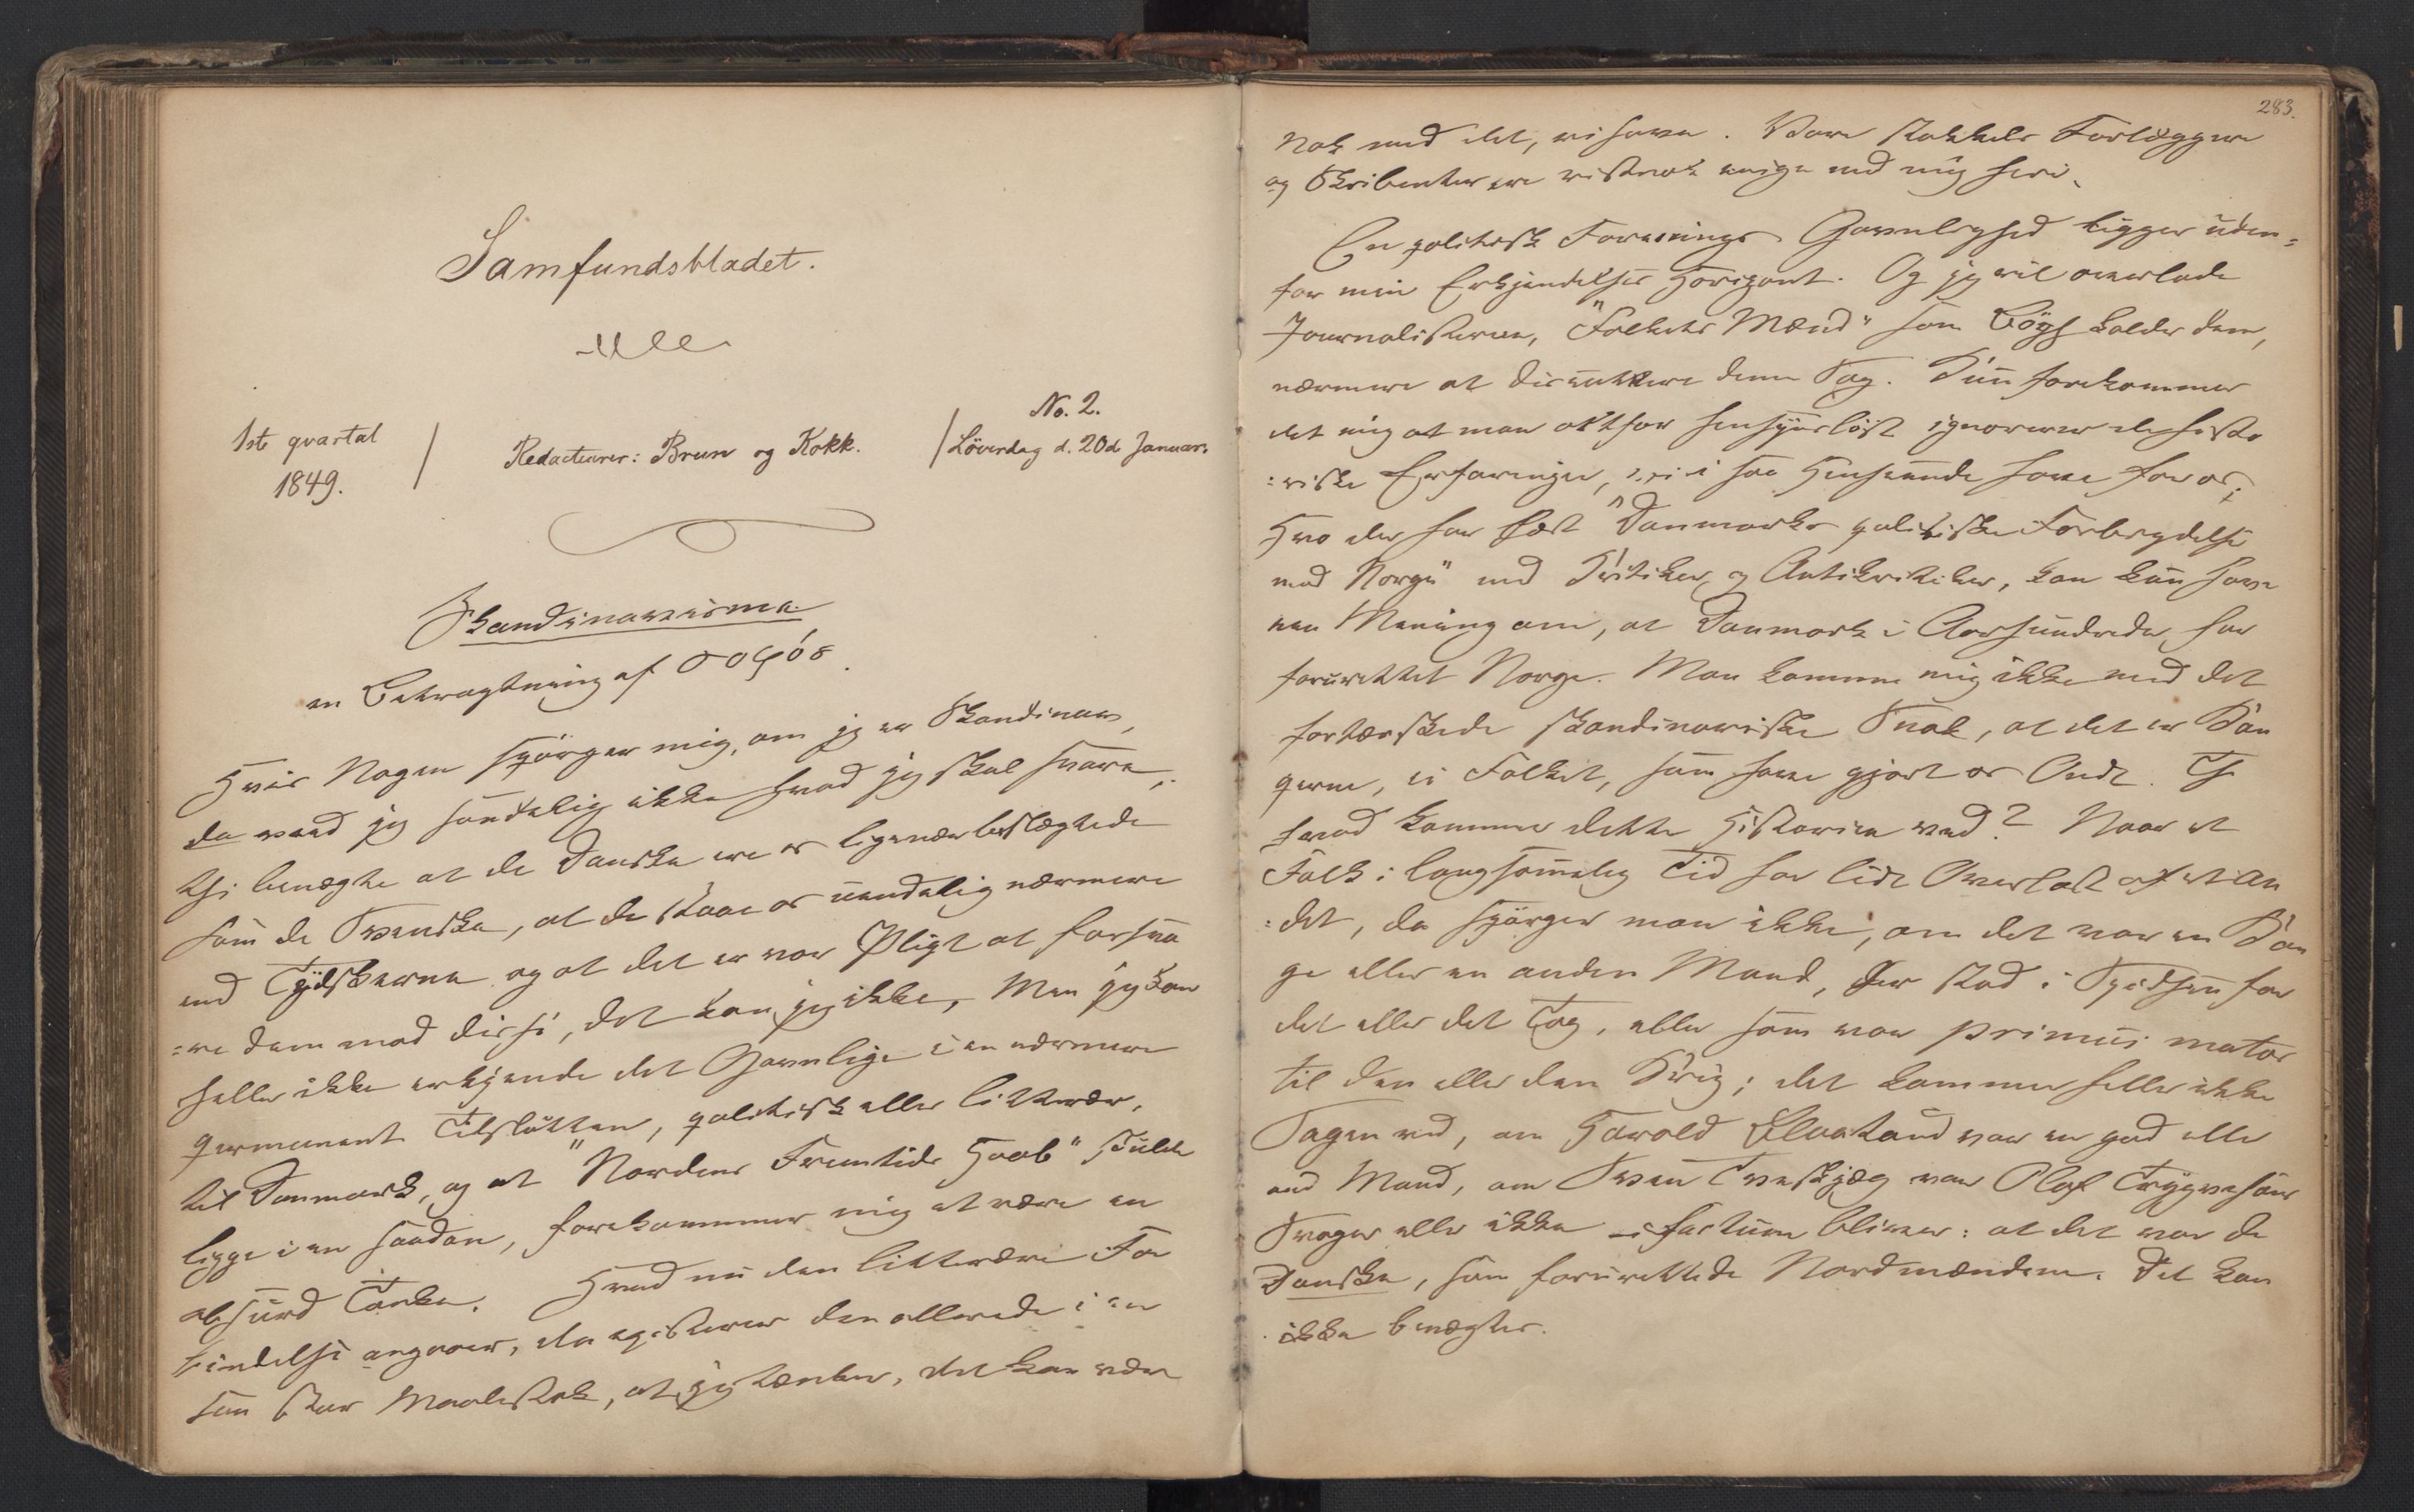 Samfundsbladet.
1ste qvartal
1849.
Redacteurer: Brun og Kokk.
No. 2.
Löverdag d. 20de Januar.
Skandinavisme
en Betragtning af σοφός.
Hvis Nogen spörger mig, om jeg er Skandinav,
da veed jeg sandelig ikke hvad jeg skal svare;
thi benægte at de Danske ere os ligenær beslægtede
som de Svenske, at de staae os uendelig nærmere
end Tydskerne og at det er vor Pligt at forsva
=re dem mod disse, det kan jeg ikke, Men jeg kan
heller ikke erkjende det Gavnlige i en nærmere
permanent Tilslutten, politisk eller litterær,
til Danmark, og at "Nordens Fremtids Haab" skulde
ligge i en saadan, forekommer mig at være en
absurd Tanke. Hvad nu den litterære For
bindelse angaaer, da existerer den allerede i en
saa stor Maalestok, at jeg tænker, det kan være
283.
Nok med det, vi have. Vore stakkels Forlæggere
og Skribenter ere vistnok enige med mig heri.
En politisk Forenings Gavnlighed ligger uden=
for min Erkjendelses Horizont. Og jeg vil overlade
Journalisterne, "Folkets Mænd" som Bögh kalder dem,
nærmere at discuttere denne Sag. Kun forekommer
det mig at man altfor hensynslöst ignorerer de histo
=riske Erfaringer, vi i saa Henseende have for os;
Hvo der har læst "Danmarks politiske Forbrydelse
mod Norge" med Kritiker og Antikritiker, kan kun have
een Mening om, at Danmark i Aarhundreder har
forurettet Norge. Man komme mig ikke med det
fortærskede skandinaviske Snak, at det er Kon
gerne, ei Folket, som have gjort os Ondt. Thi
hvad kommer dette Historien ved? Naar et
Folk i langsommelig Tid har lidt Overlast af et An
=det, da spörger man ikke, om det var en Kon
ge eller en anden Mand, der stod i Spidsen for
det eller det Tog, eller som var primus motor
til den eller den Krig; det kommer heller ikke
Sagen ved, om Harald Blaatand var en god eller
ond Mand, om Svein Tveskjæg var Olaf Trygvesöns
Svoger eller ikke – factum bliver: at det var de
Danske, som forurettede Nordmændene. Det kan
ikke benægtes.